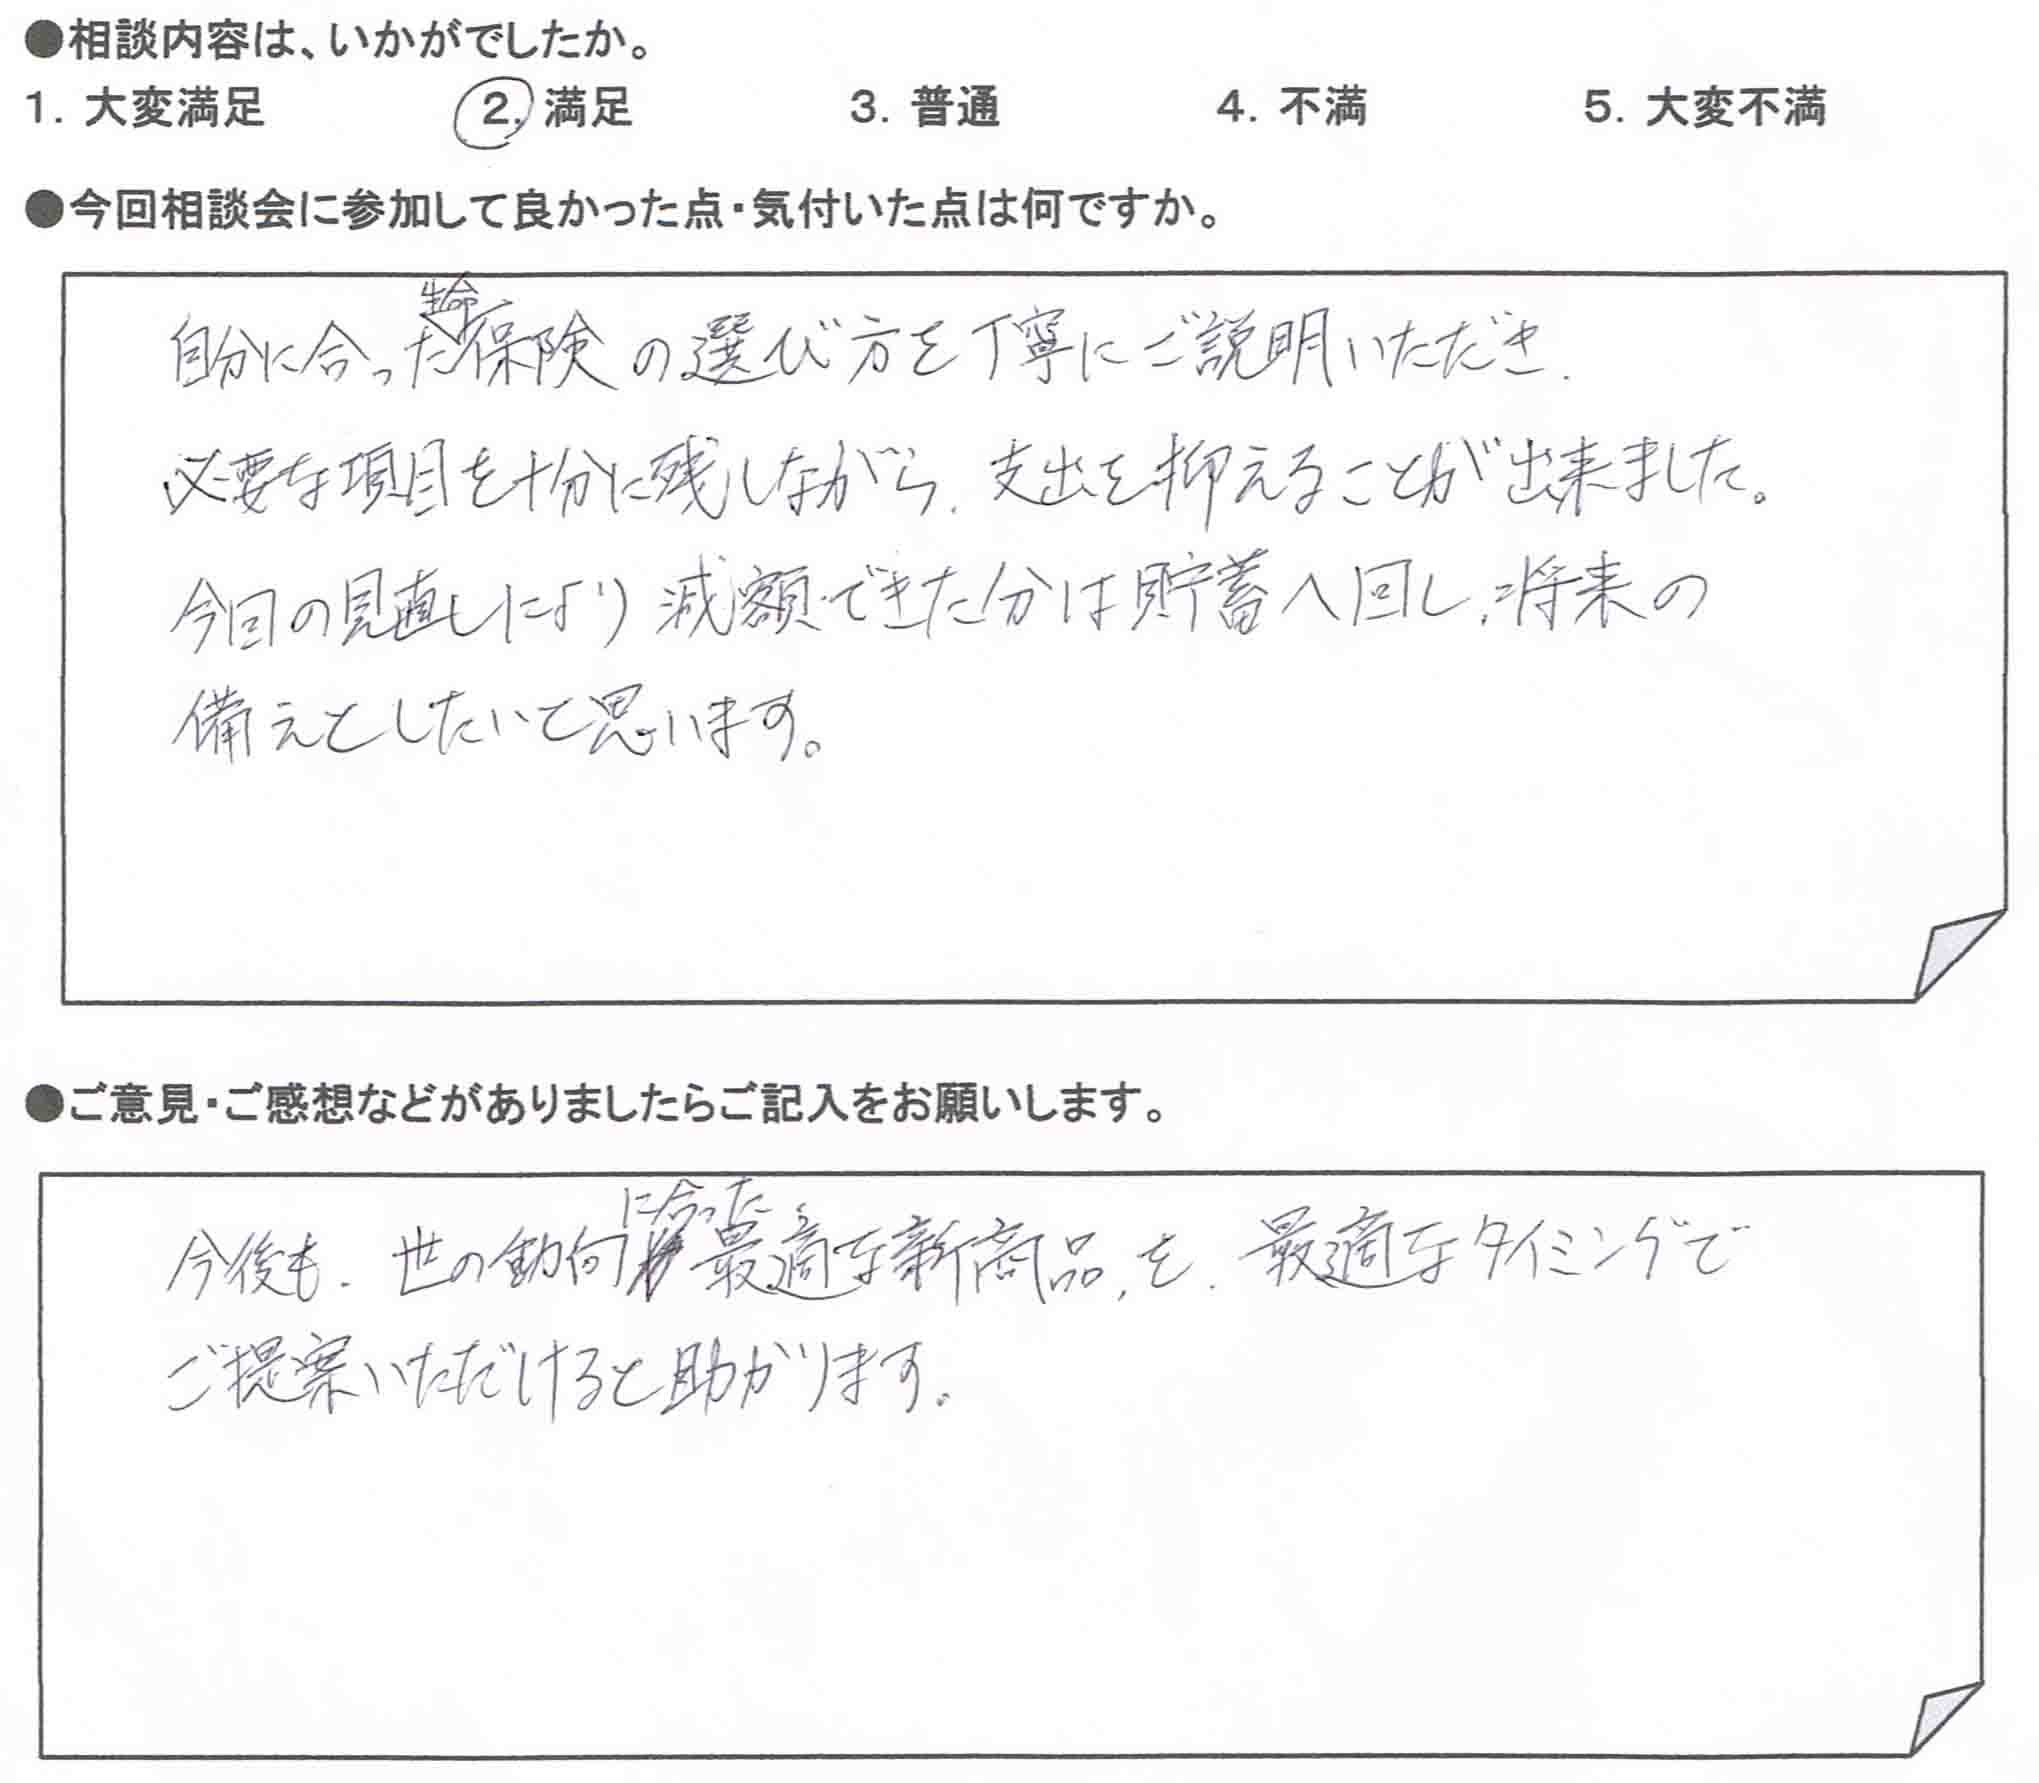 ●相談内容は、いかがでしたか。
1. 大変満足 2. 満足 3. 普通 4. 不満 5. 大変不満
●今回相談会に参加して良かった点・気付いた点は何ですか。
自分に合った生命保険の選び方を丁寧にご説明いただき、
必要な項目を十分に残しながら、支出を抑えることが出来ました。
今回の見直しにより減額できた分は貯蓄へ回し、将来の
備えとしたいと思います。
●ご意見・ご感想などがありましたらご記入をお願いします。
今後も、世の動向に合った最適な新商品、を、最適なタイミングで
ご提案いただけると助かります。